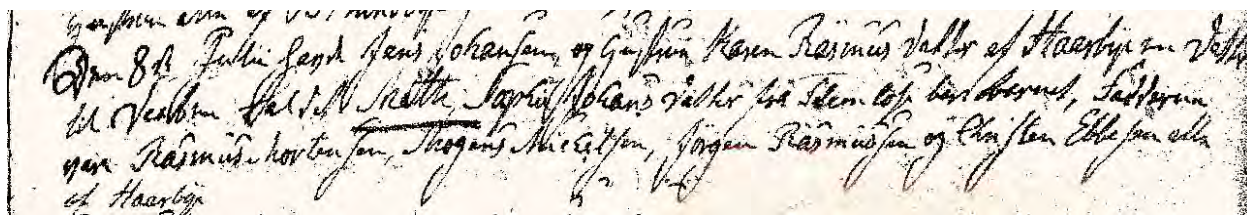 Den 8de Julii hafde Jens Johansen og Hustrue Karen Rasmus Datter af Haarbye en Datter
til Daaben kaldet Mette, Sophie Johans Datter fra Flemløse bar Barnet, Fadderne
vare Rasmus Mortensen, Mogens Michelsen, Jörgen Rasmussen og Christen Ebbesen alle
af Haarbye